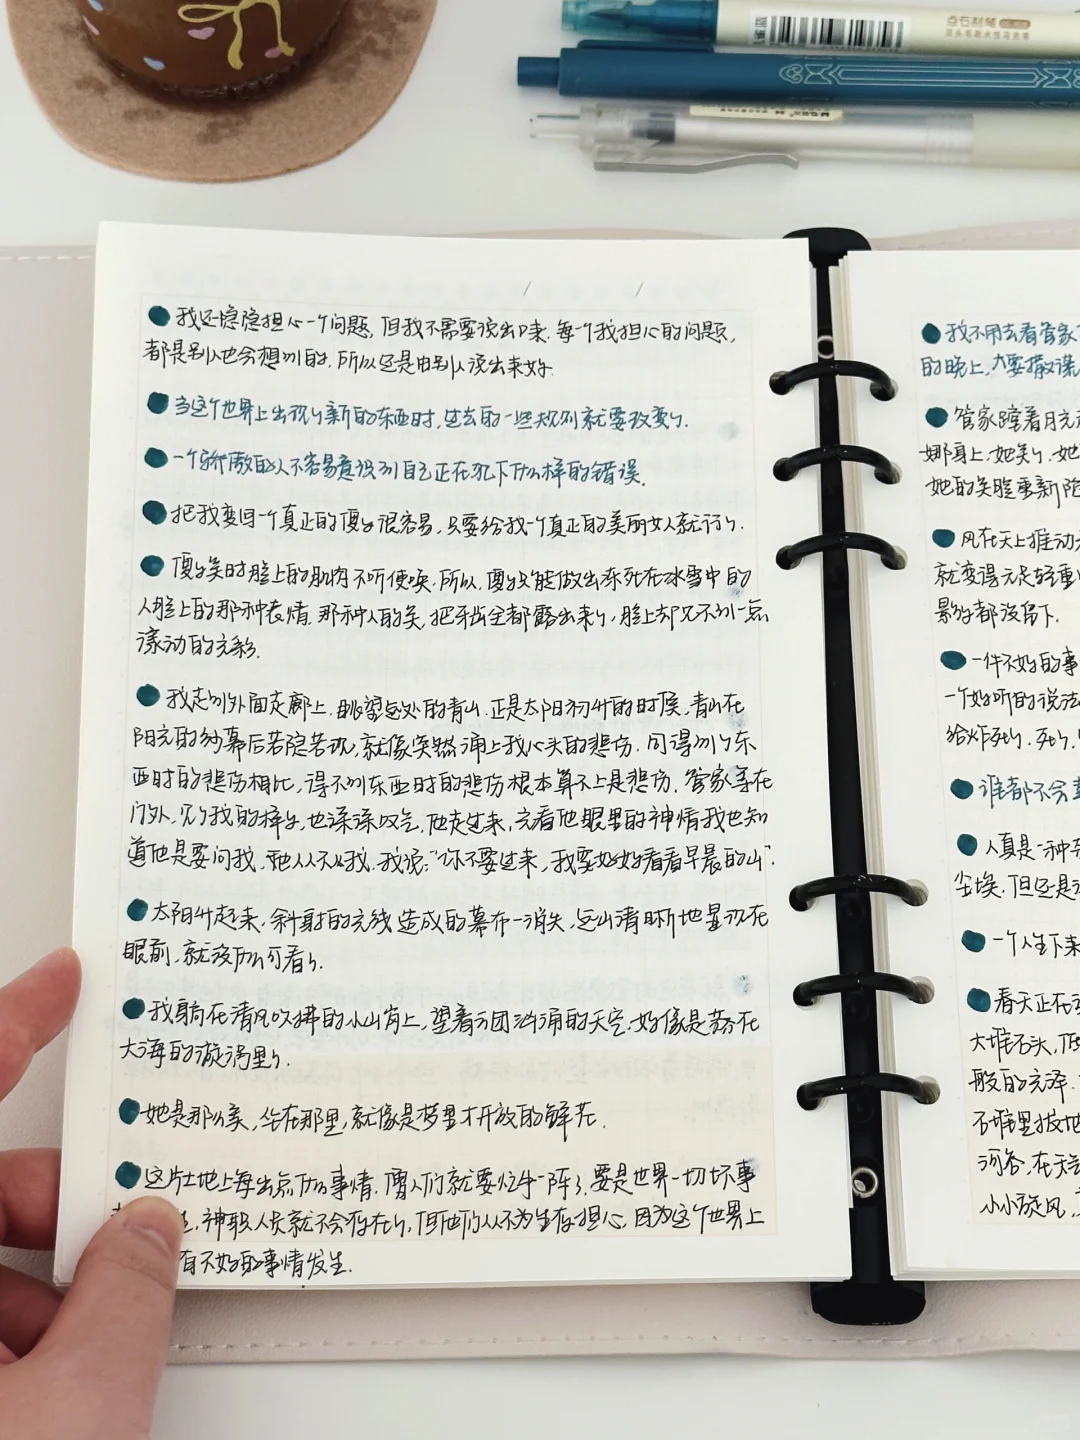 点石制笔
我还隐隐担心一个问题,但我不需要说出口来.每个我担心的问题,
都是别人也会想到的.所以还是由别人说出来好.
当这个世界上出现了新的东西时,过去的一些规则就要改变了.
一个骄傲的人不容易意识到自己正在犯下什么样的错误.
把我变回一个真正的傻子很容易,只要给我一个真正的美丽女人就行了.
傻子笑时脸上的肌肉不听使唤.所以,傻子只能做出冻死在冰雪中的
人脸上的那种表情.那种人的笑,把牙齿全都露出来了,脸上却见不到一点
漾动的光彩.
我走到外面走廊上,眺望远处的青山.正是太阳初升的时候,青山在
阳光的纱幕后若隐若现,就像突然涌上我心头的悲伤.同得到了东
西时的悲伤相比,得不到东西时的悲伤根本算不上是悲伤.管家等在
门外,见了我的样子,也深深叹气.他走过来,光看他眼里的神情我也知
道他是要问我,她从不从我.我说:“你不要过来,我要好好看看早晨的山”.
太阳升起来,斜射的光线造成的幕布一消失,远山清晰地显现在
眼前,就没什么可看了.
我躺在清风吹拂的小山岗上,望着云团汹涌的天空.好像是落在
大海的漩涡里了.
她是那么美,坐在那里,就像是梦里才开放的鲜花.
这片土地上每出点什么事情,僧人们就要忙乎一阵了.要是世界一切坏事
,神职人员就不会存在了,但他们从不为生存担心,因为这个世界上
有不好的事情发生.
我不用去看管家
的晚上,
管家蹚着月光
娜身上.她笑了.她
她的笑脸重新陷
风在天上推动
就变得无足轻重
影子都没留下.
一件不好的事
一个好听的说法
给炸死了.死了,
谁都不会
人真是一种
尘埃.但还是
一个人生下来
春天正在
大堆石头,
般的光泽.
石堆里拔地
河谷,在天
小小旋风,